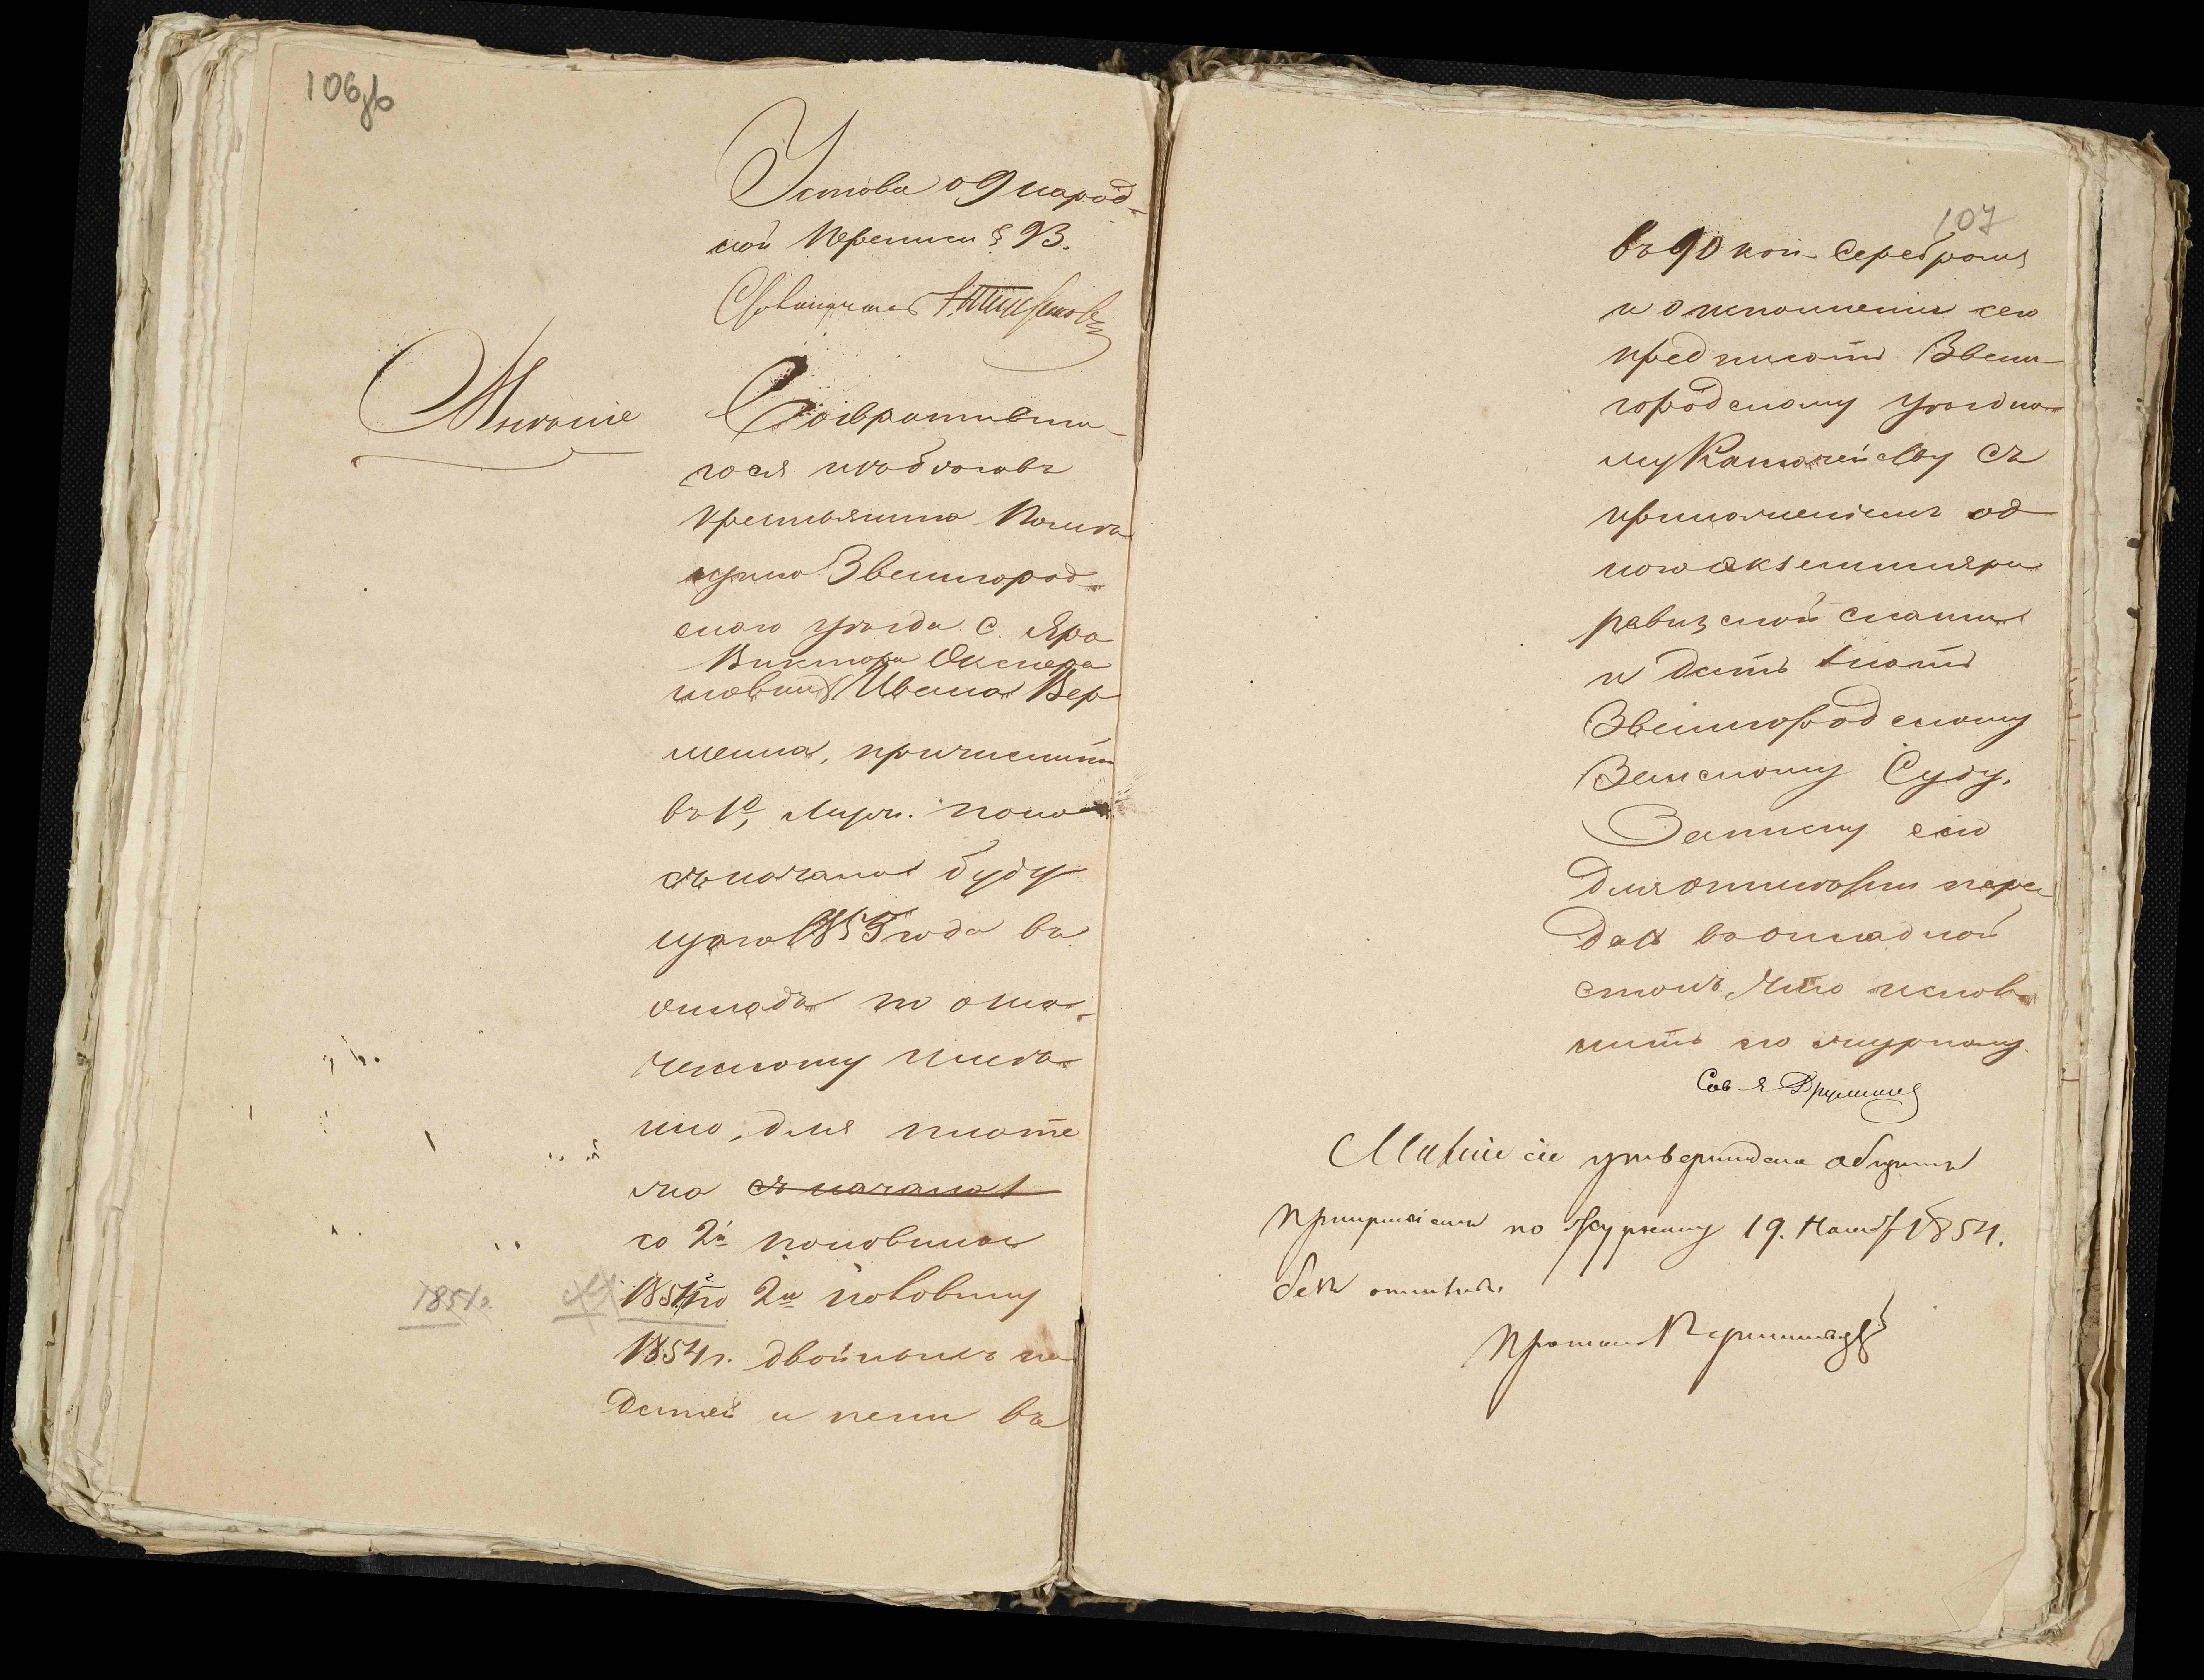 106 об
Устава о 9 народ-
ной переписи § 93.
Мнѣніе
Возвративша-
гося изъ бѣговъ
крестьянина Помѣ-
щика Звенигород-
скаго уѣзда с.
Виктора
Ивана Вер
мена, причислить
въ 1е,
съ начала буду
щаго 1855 года въ
окладъ по озна-
ченному имѣ-
нію, для плате
жа съ начала
со 2й половины
1851 г. по 2ю половину
1851г.
1854 г. двойныхъ по
датей и пени въ
107
въ 90 коп. серебромъ
и о исполненіи сего
предписать Звени-
городскому уѣздно-
му Казначейству съ
приложеніемъ од
ного экземпляра
ревизской сказки
и дать знать
Звенигородскому
Земскому Суду.
Записку сію
для отмѣтки пере
дать въ окладной
столъ, что испол-
нить по журналу.
Мнѣніе сіе утверждено общимъ
присутствіемъ по журналу 19. Ноября 1854.
безъ отмѣны.